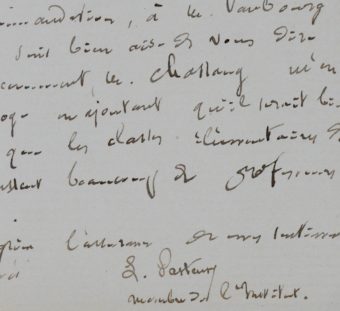 mmandation, à M. Vaubourg
suis bien aise de vous dire
cemment, M. Chassang m'en
oge en ajoutant qu'il serait bi
que les classes élémentaires
ssent beaucoup de professeurs
l'assurance de mes
L. Pasteur
membre de l'Institut.